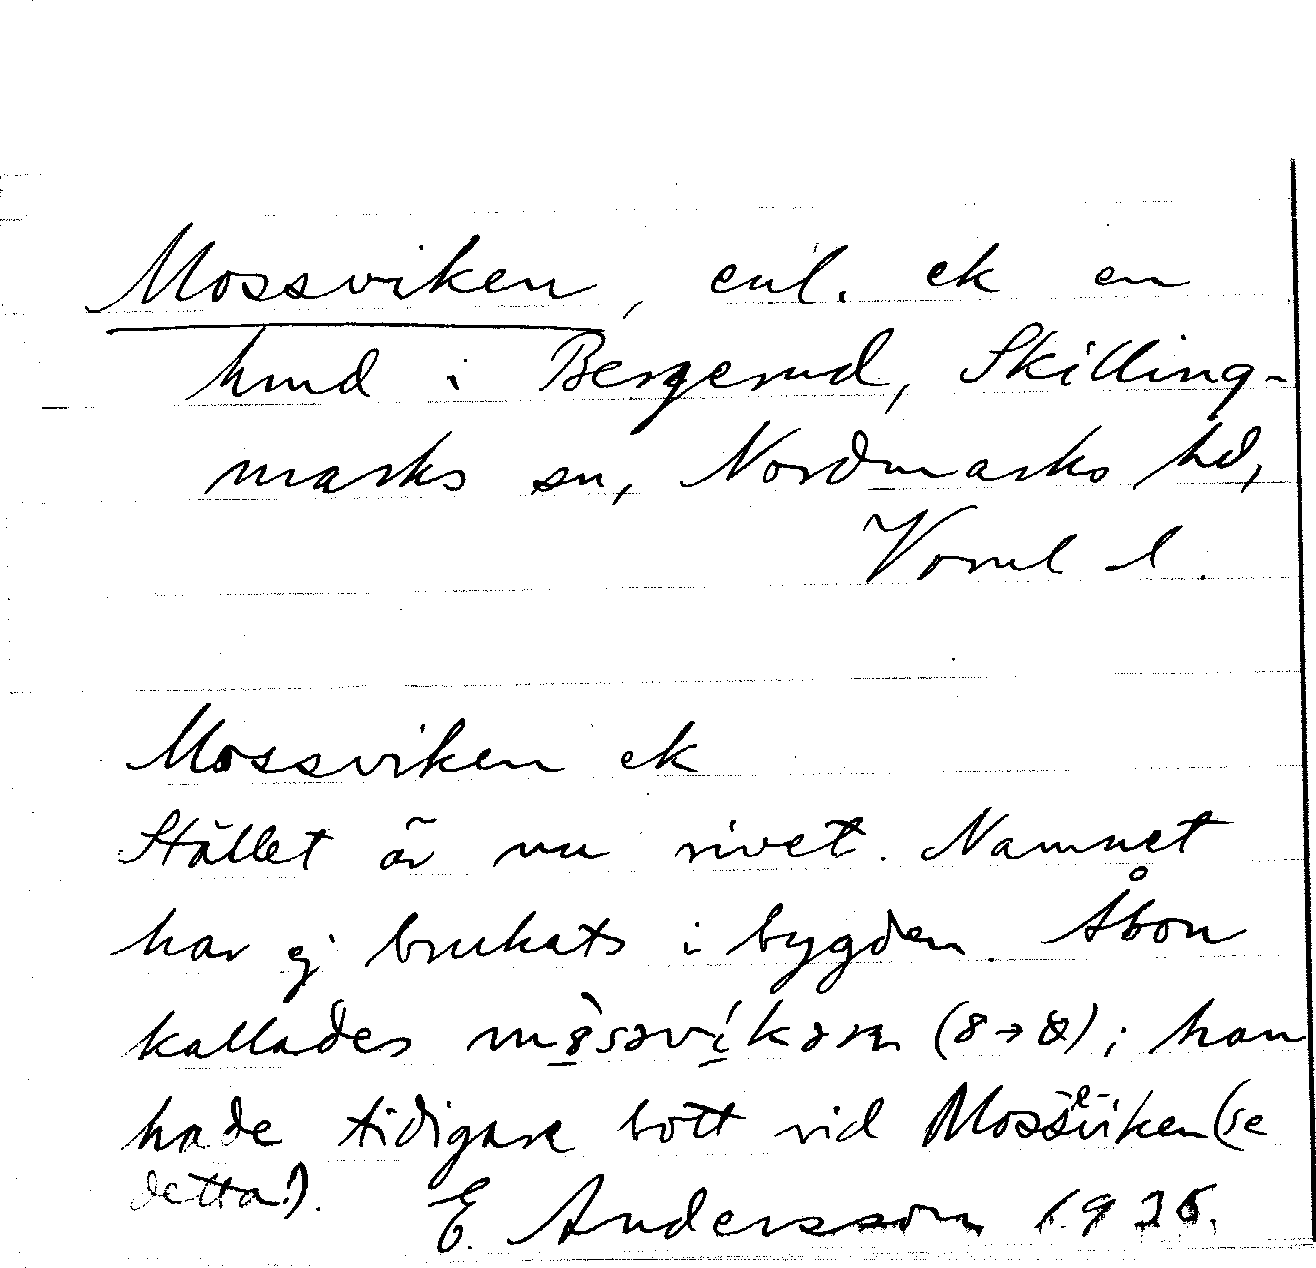 Mossviken, enl. ek en
hmd i Bergerud, Skilling-
marks sn, Nordmarks hd,
Vrml l.
Mossviken ek
Stället är nu rivet. Namnet
har ej brukats i bygden. Åbon
kallades (8→); han
hade tidigare bott vid Mosseviken (se
detta!). E. Andersson 1926.